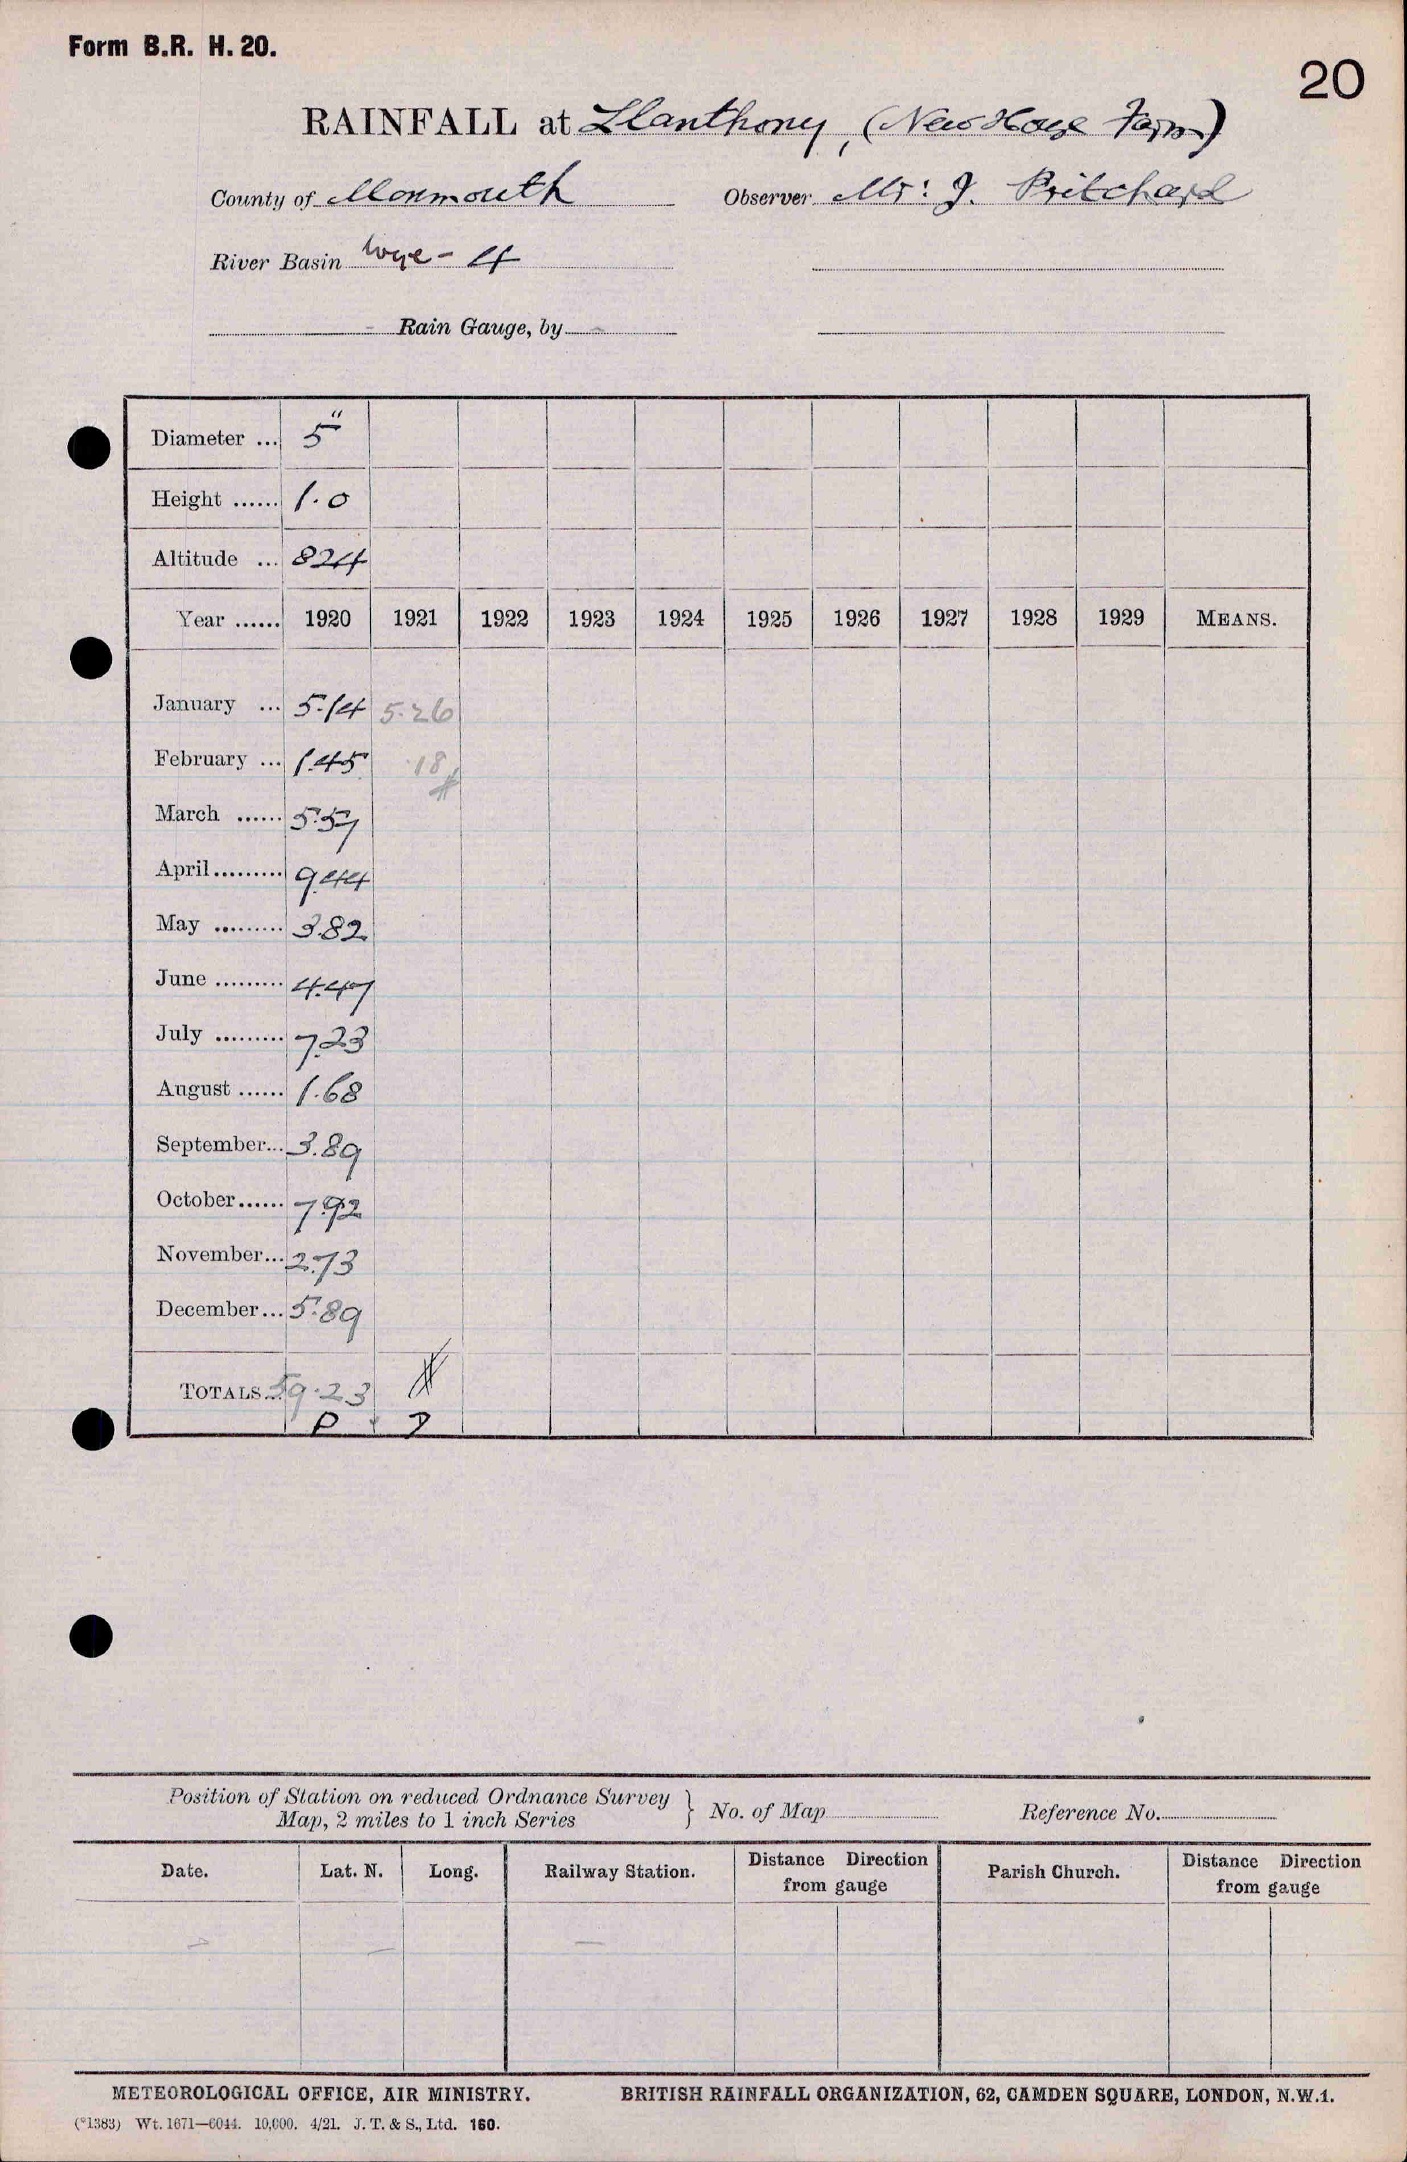 Form B.R. H. 20.
20
RAINFALL at Llanthony, (New House Farm)
County of Monmouth Observer Mr: J. Pritchard
River Basin Wye - 4
Rain Gauge, by
Diameter ... 5"
Height ...... 1.0
Altitude ... 824
Year ...... 1920 1921 1922 1923 1924 1925 1926 1927 1928 1929 MEANS.
January ... 5.14 5.26
February ... 1.45 .18
March ...... 5.57
April ......... 9.44
May ......... 3.82
June ......... 4.47
July ......... 7.23
August ...... 1.68
September... 3.89
October...... 7.92
November... 2.73
December... 5.89
TOTALS... 59.23
P
Position of Station on reduced Ordnance Survey
Map, 2 miles to 1 inch Series } No. of Map Reference No.
Date. Lat. N. Long. Railway Station. Distance Direction from gauge Parish Church. Distance Direction from gauge
METEOROLOGICAL OFFICE, AIR MINISTRY. BRITISH RAINFALL ORGANIZATION, 62, CAMDEN SQUARE, LONDON, N.W.1.
(*1383) Wt. 1671—6044. 10,000. 4/21. J. T. & S., Ltd. 160.